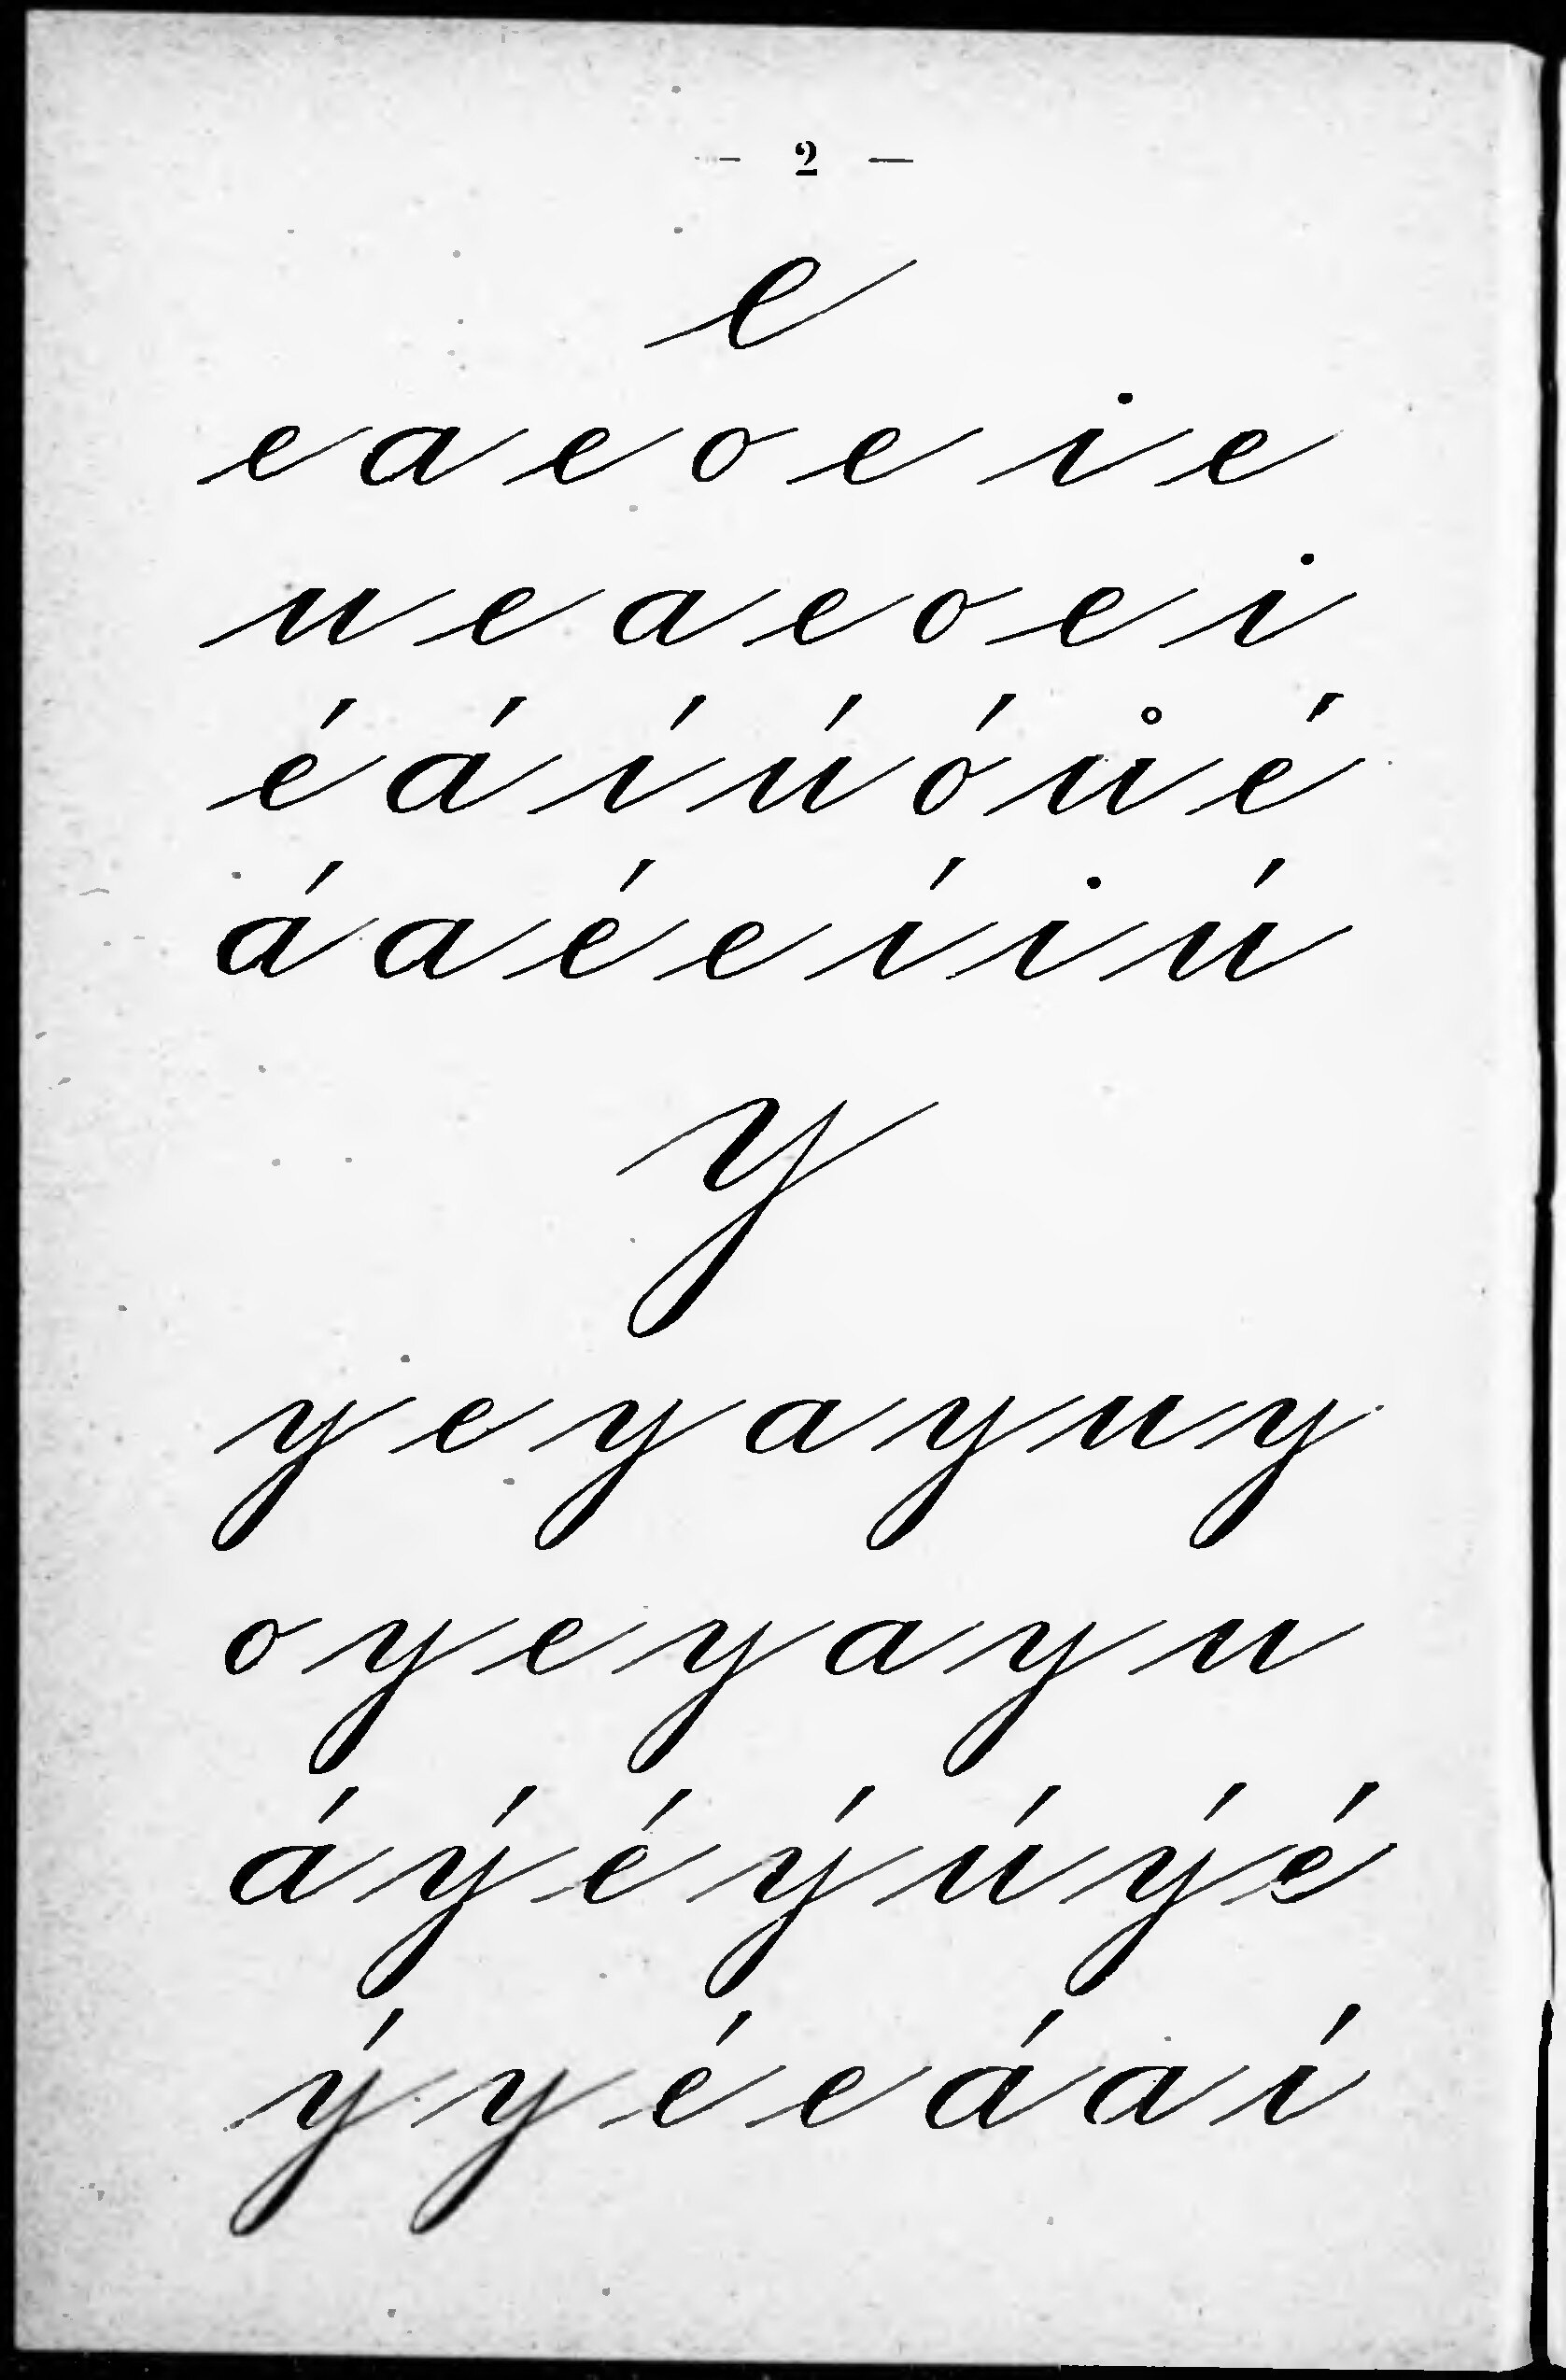 — 2 —
e
e a e o e i e
u e a e o e i
é á í ú ó ů é
á a é e í i ú
y
y e y a y u y
o y e y a y u
á ý é ý ú ý é
ý y é e á a í